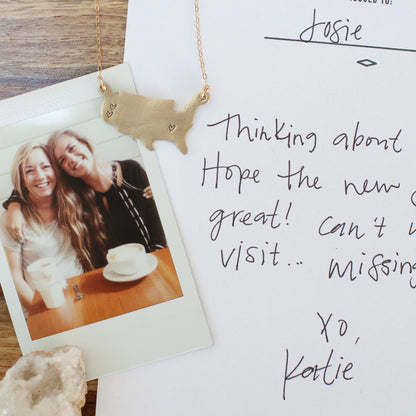 TO:
Josie
Thinking about
Hope the new
great! Can't
visit... missing
xo,
Katie